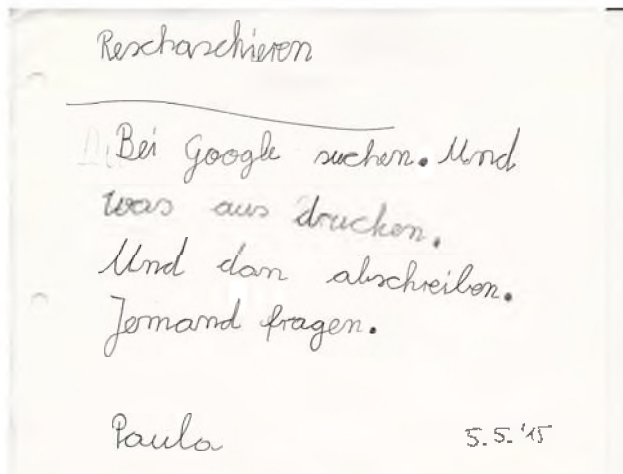 Reschaschieren
Bei Google suchen. Und
was aus drucken.
Und dan abschreiben.
Jemand fragen.
Paula
5.5.'15